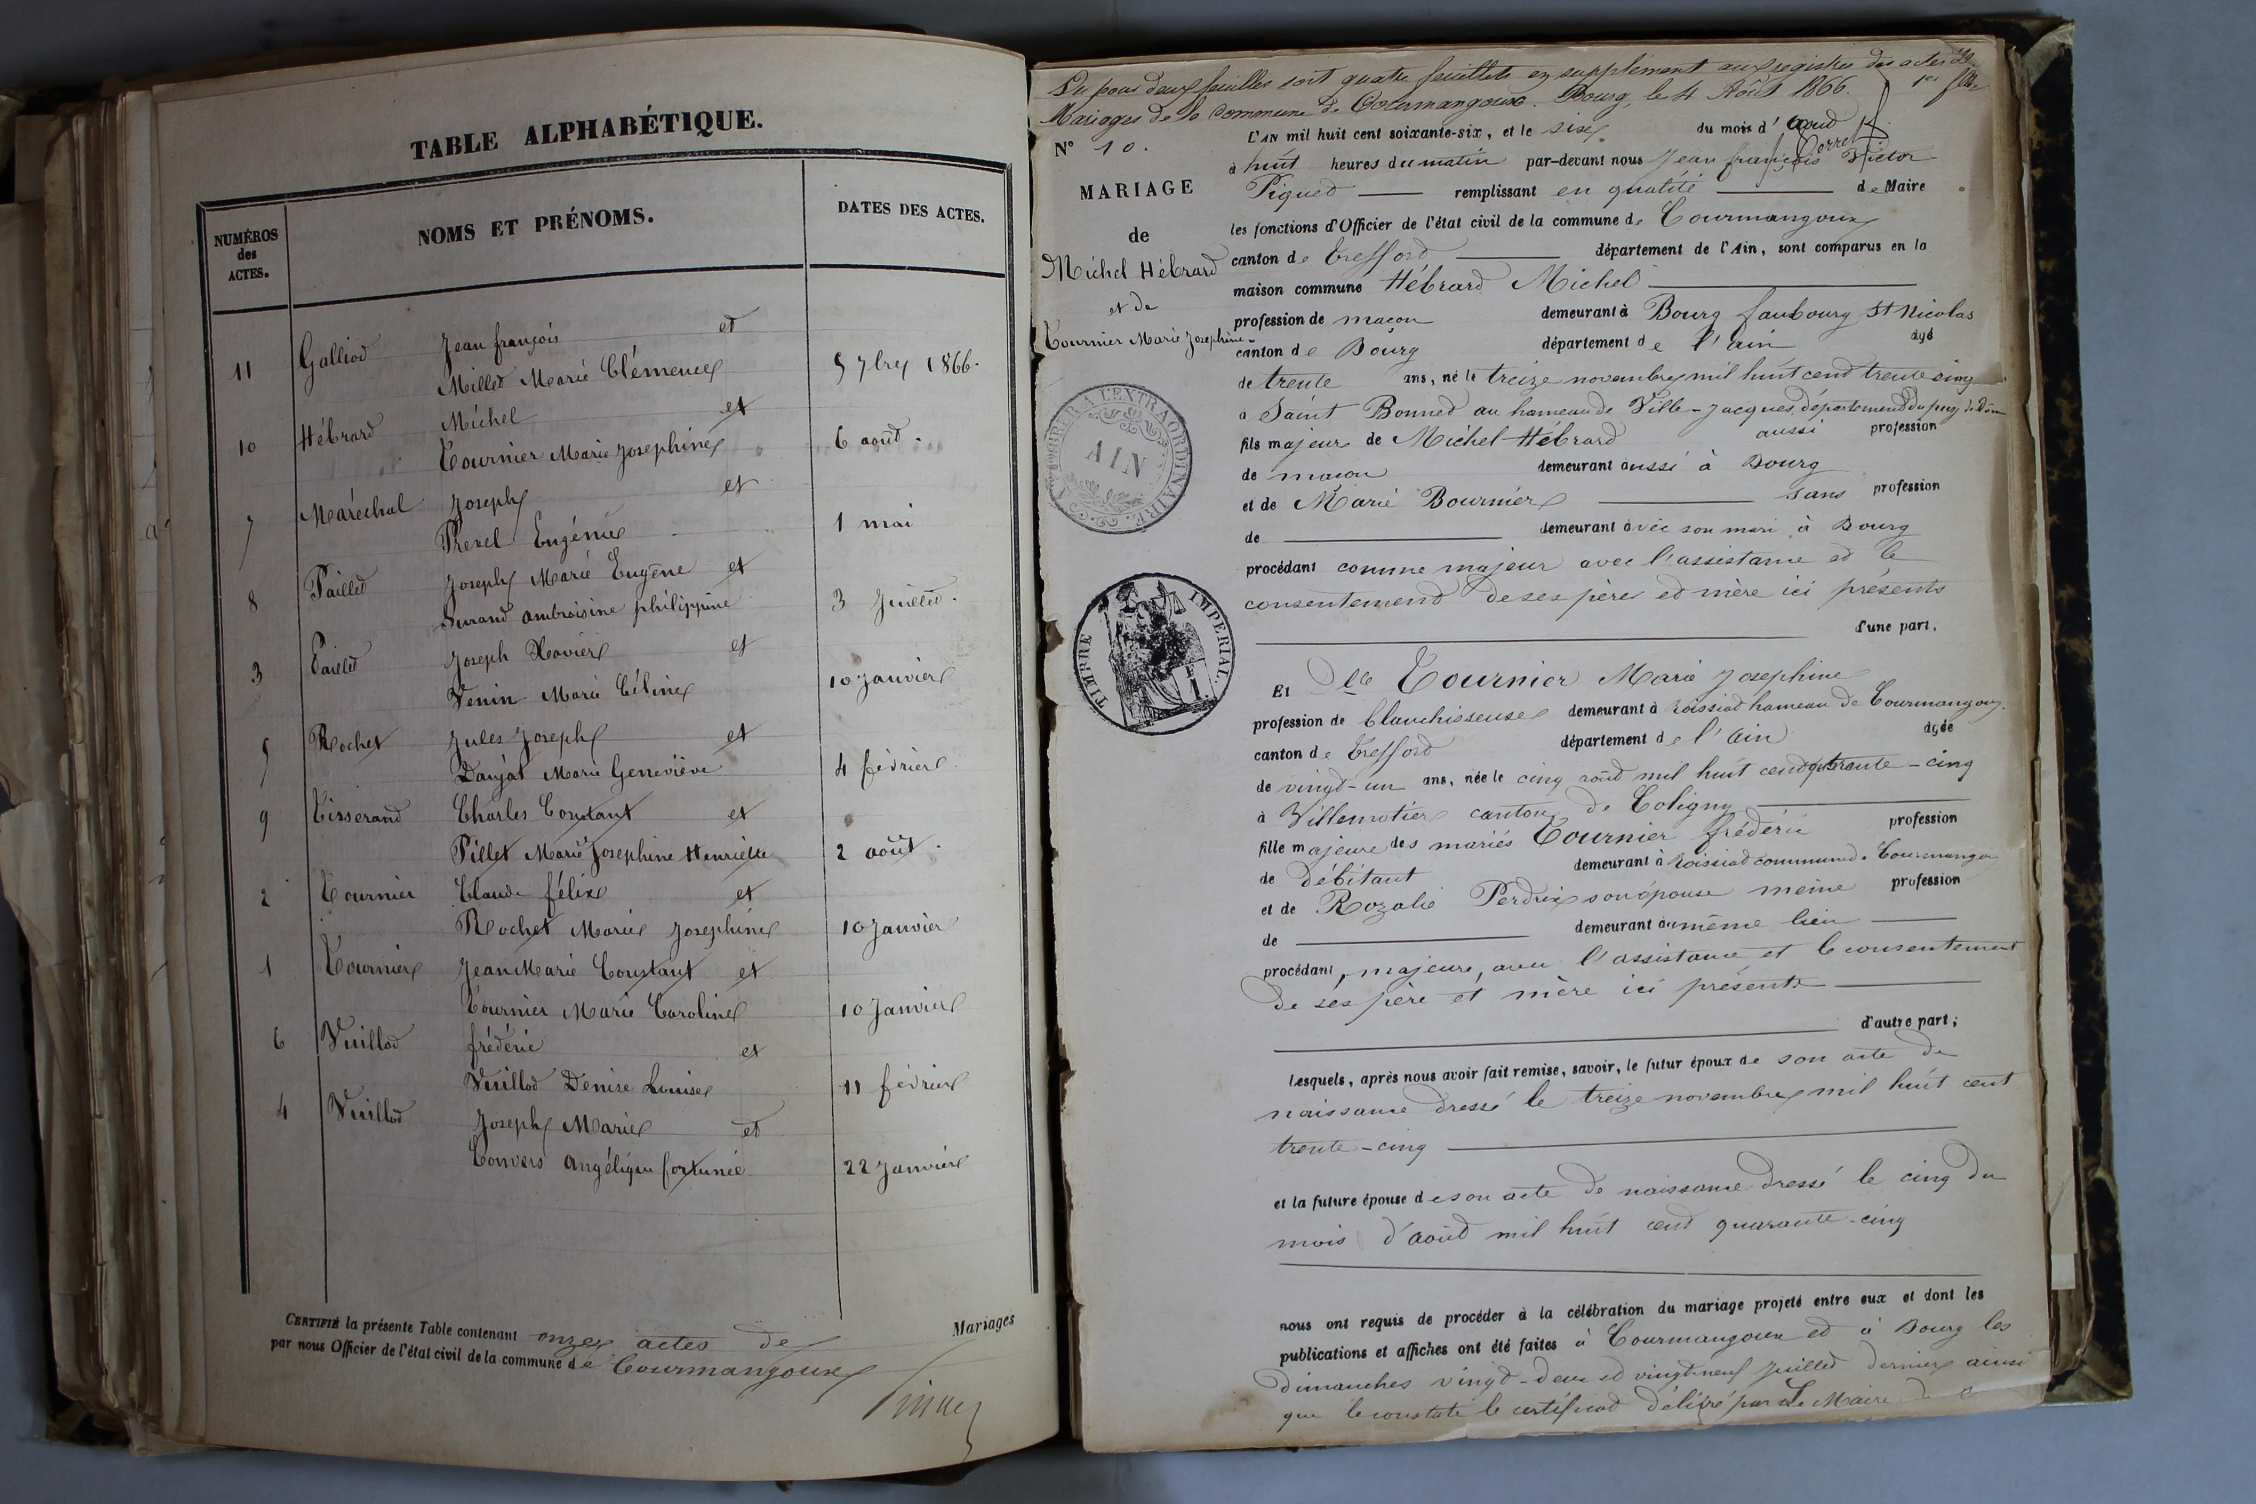 TABLE ALPHABÉTIQUE.
NUMÉROS des ACTES.
NOMS ET PRÉNOMS.
DATES DES ACTES.
11 Galliod Jean françois et
Milled Marie Clémence 5 7bre 1866.
10 Hébrard Michel et
Tournier Marie Josephine 6 août.
7 Maréchal Joseph et
Prevel Eugénie 1 mai
8 Pailled Joseph Marie Eugène et
Durand ambroisine philippine 3 Juillet.
3 Pailled Joseph Xavier et
Venin Marie Céline 10 Janvier
5 Rochet Jules Joseph et
Danjat Marie Geneviève 4 février.
9 Tisserand Charles Constant et
Pillet Marie Josephine Henriette 2 août.
2 Tournier Claude félix et
Rochet Marie Josephine 10 Janvier
1 Tournier Jean Marie Constant et
Tournier Marie Caroline 10 Janvier
6 Vuillod frédéric et
Vuillod Denise Louise 11 février
4 Vuillod Joseph Marie et
Convers angélique fortunée 22 Janvier
CERTIFIÉ la présente Table contenant onze actes de Mariages
par nous Officier de l'état civil de la commune de Courmangoux
Vu pour deux feuilles soit quatre feuillets en supplément aux registres des actes de
Mariages de la Commune de Courmangoux. Bourg, le 4 Août 1866.
1er
N° 10.
MARIAGE
de
Michel Hébrard
et de
Tournier Marie Josephine
A TIMBRER A L'EXTRAORDINAIRE.
AIN
TIMBRE IMPERIAL.
L'AN mil huit cent soixante-six, et le six du mois d'aoud
à huit heures du matin par-devant nous Jean françois Victor
Piqued remplissant en qualité de Maire
les fonctions d'Officier de l'état civil de la commune de Courmangoux
canton de Trefford département de l'Ain, sont comparus en la
maison commune Hébrard Michel
profession de maçon demeurant à Bourg faubourg St Nicolas
canton de Bourg département de l'ain âgé
de trente ans, né le treize novembre mil huit cend trente cinq
à Saint Bonned au hameau de Ville-Jacques, départemend du puy de Dôm
fils majeur de Michel Hébrard aussi profession
de maçon demeurant aussi à Bourg
et de Marie Bournier sans profession
de demeurant avec son mari à Bourg
procédant comme majeur avec l'assistance ed le
consentemend de ses père ed mère ici présents
d'une part.
Et Dlle Tournier Marie Josephine
profession de blanchisseuse demeurant à Roissiad hameau de Courmangoux
canton de Trefford département de l'ain âgée
de vingd-un ans, née le cinq aoûd mil huit cend quarante-cinq
à Villemotier canton de Coligny
fille majeure des mariés Tournier frédéric profession
de débitant demeurant à Roissiad commune de Courmangou
et de Rozalie Perdrix son épouse même profession
de demeurant au même lieu
procédant, majeure, avec l'assistance et le consentement
de ses père et mère ici présents
d'autre part;
Lesquels, après nous avoir fait remise, savoir, le futur époux de son acte de
naissance dressé le treize novembre mil huit cent
trente-cinq
et la future épouse de son acte de naissance dressé le cinq du
mois d'aoûd mil huit cend quarante-cinq
nous ont requis de procéder à la célébration du mariage projeté entre eux et dont les
publications et affiches ont été faites à Courmangoux ed à Bourg les
dimanches vingd-deux ed vingt-neuf Juilled dernier ainsi
que le constate le certificad délivré par le Maire de